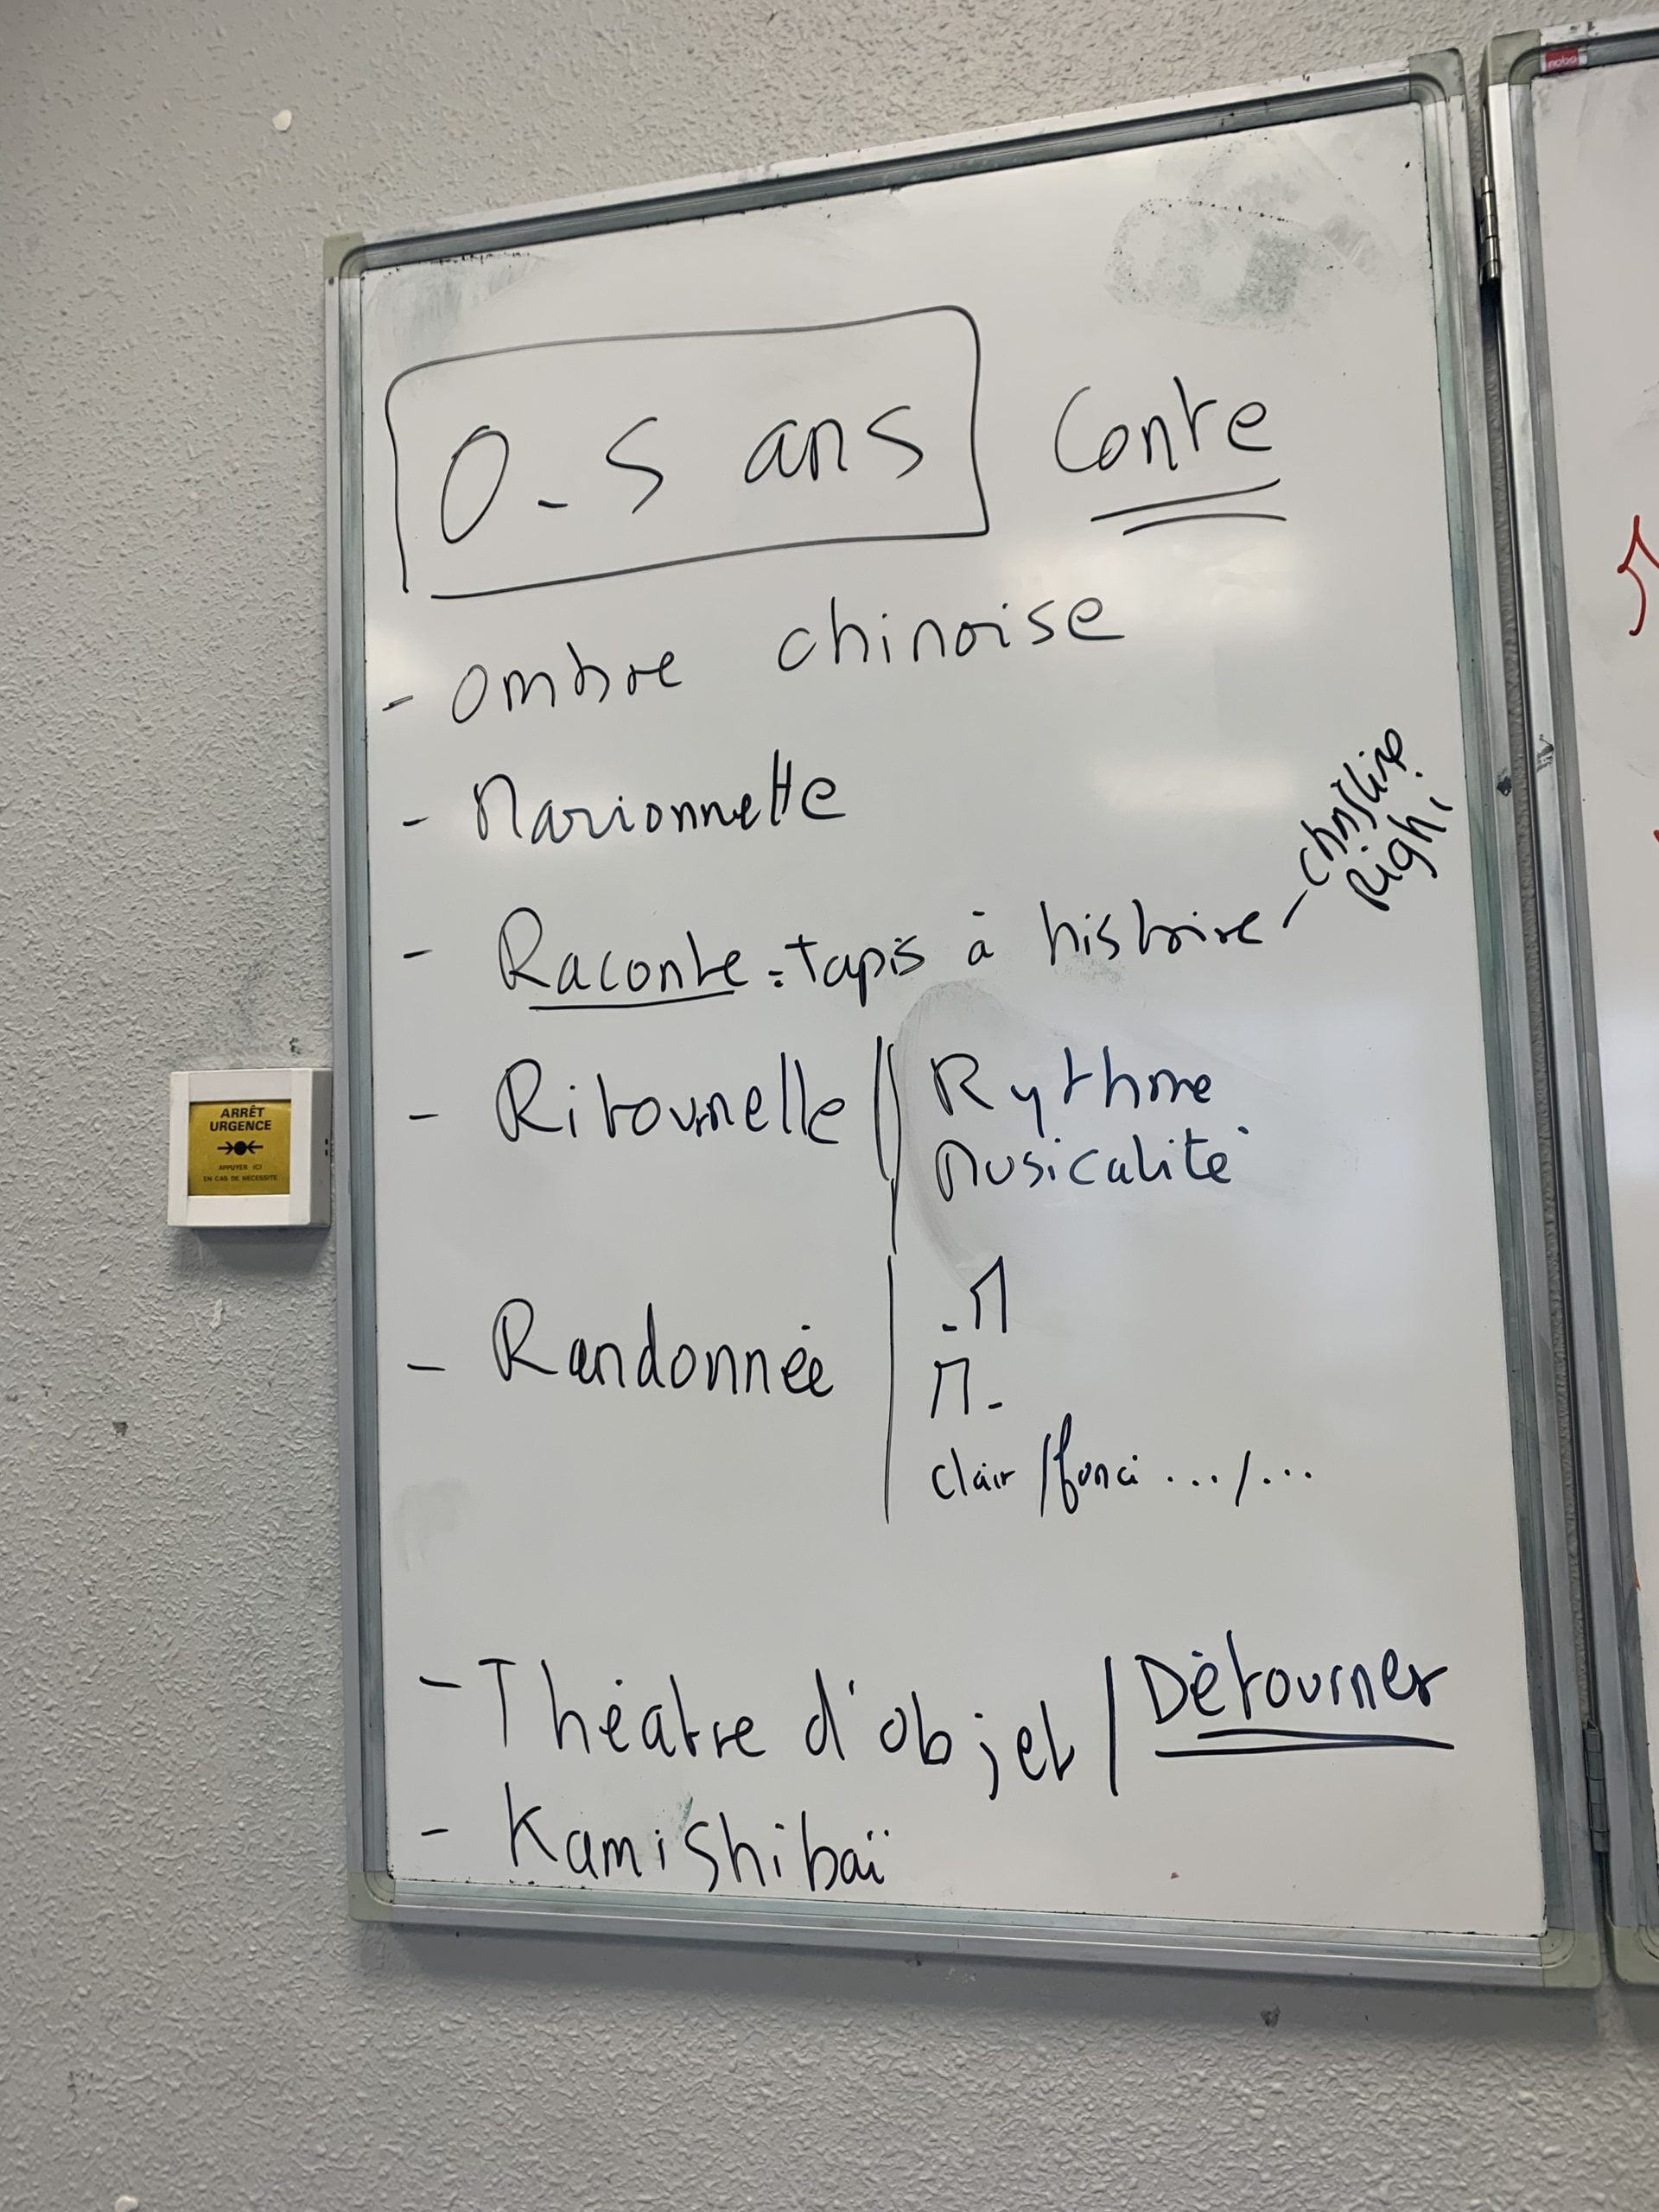 0-5 ans Conte
- ombre chinoise
- Marionnette
- Raconte-tapis à histoire - Christine Righi
- Ritournelle || Rythme
Musicalité
- Randonnée
clair / foncé .../...
- Théâtre d'objet / Détourner
- Kamishibaï
ARRÊT
URGENCE
APPUYER ICI
EN CAS DE NECESSITE
nobo